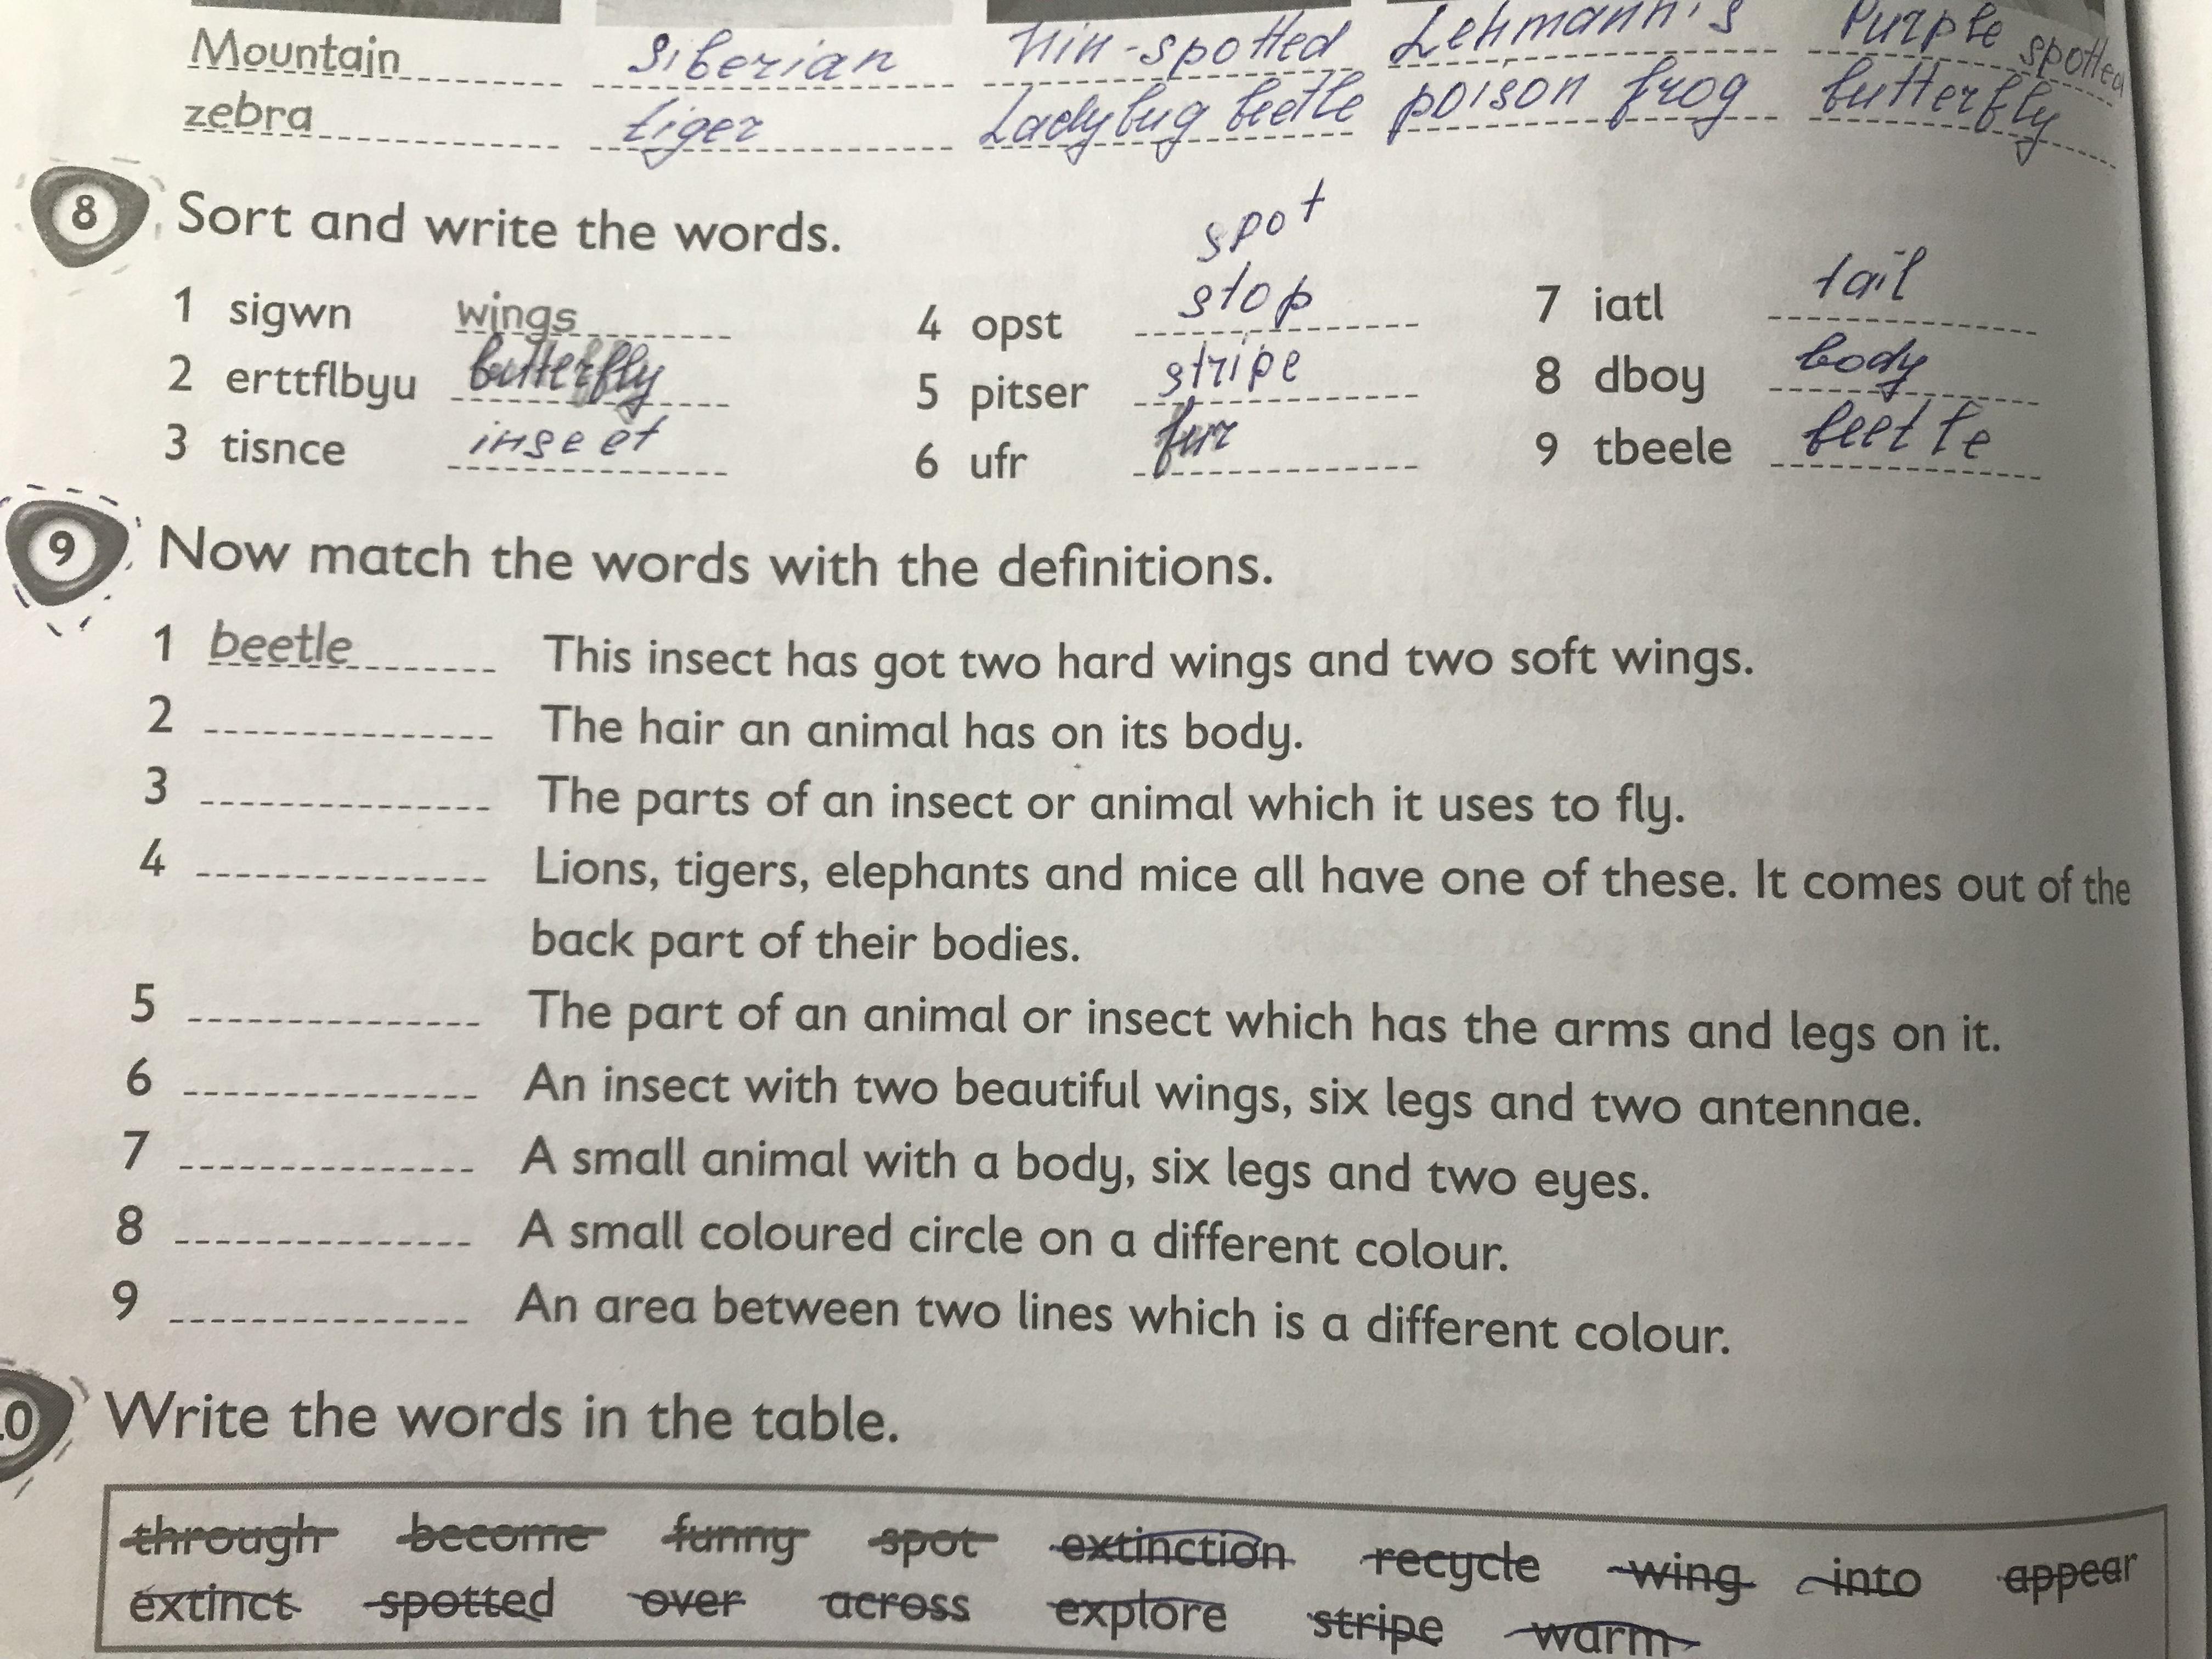 Mountain siberian Nin-spotted Lehmann's Purple spotted
zebra tiger Ladybug beetle poison frog butterfly
8 Sort and write the words.
spot
1 sigwn wings 4 opst stop 7 iatl tail
2 erttflbyu butterfly 5 pitser stripe 8 dboy body
3 tisnce insect 6 ufr fur 9 tbeele beetle
9 Now match the words with the definitions.
1 beetle This insect has got two hard wings and two soft wings.
2 The hair an animal has on its body.
3 The parts of an insect or animal which it uses to fly.
4 Lions, tigers, elephants and mice all have one of these. It comes out of the
back part of their bodies.
5 The part of an animal or insect which has the arms and legs on it.
6 An insect with two beautiful wings, six legs and two antennae.
7 A small animal with a body, six legs and two eyes.
8 A small coloured circle on a different colour.
9 An area between two lines which is a different colour.
10 Write the words in the table.
through become funny spot extinction recycle wing into appear
extinct spotted over across explore stripe warm